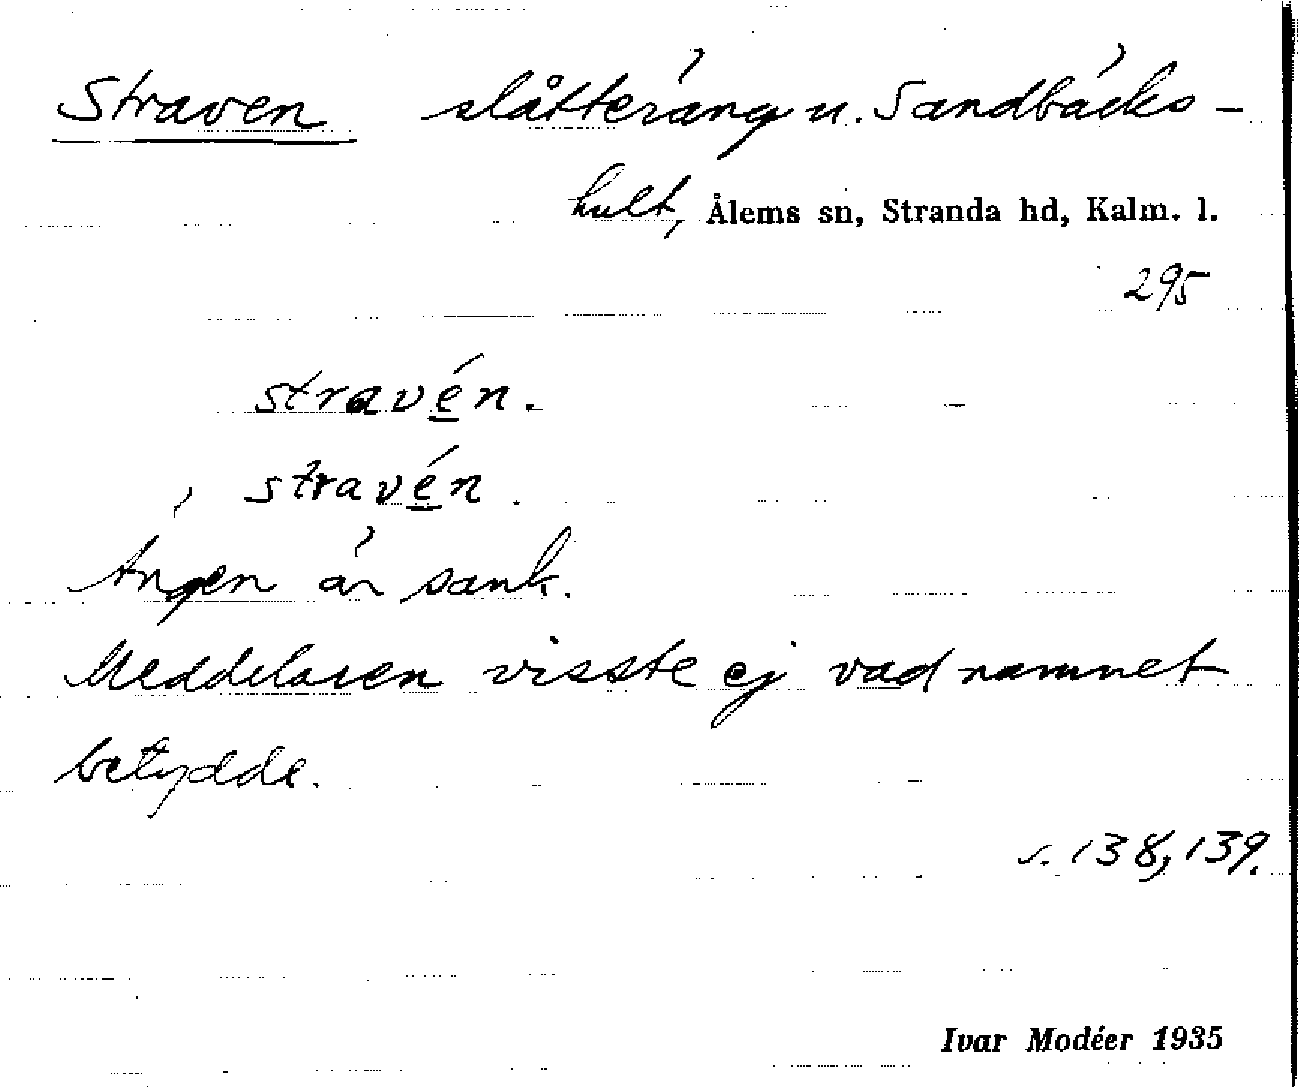 Straven slåtteräng u. Sandbäcks-
hult, Ålems sn, Stranda hd, Kalm. l.
295
stravén.
stravén.
Ängen är sank.
Meddelaren visste ej vad namnet
betydde.
s. 138, 139.
Ivar Modéer 1935